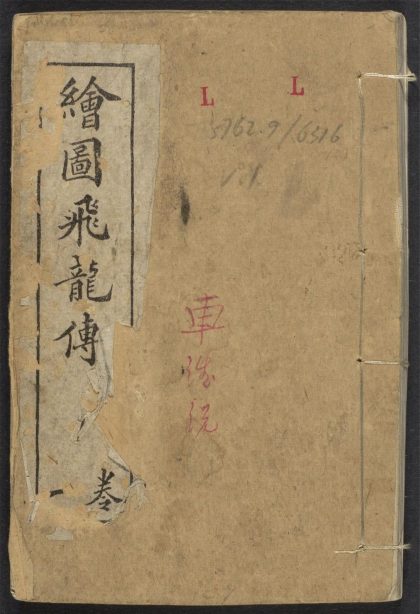 繪圖飛龍傳
卷一
L L
5762.9/6516